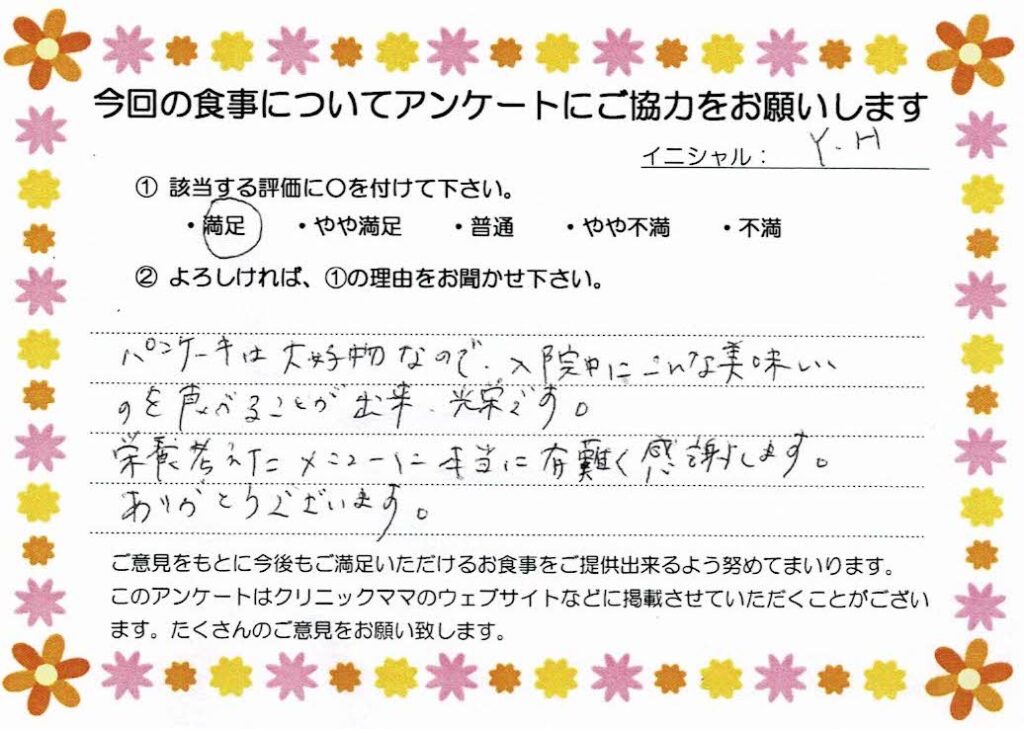 今回の食事についてアンケートにご協力をお願いします
イニシャル： Y.H
① 該当する評価に〇を付けて下さい。
・満足 ・やや満足 ・普通 ・やや不満 ・不満
② よろしければ、①の理由をお聞かせ下さい。
パンケーキは大好物なので、入院中にこんな美味しい
のを食べることが出来、光栄です。
栄養考えたメニューに本当に有難く感謝します。
ありがとうございます。
ご意見をもとに今後もご満足いただけるお食事をご提供出来るよう努めてまいります。
このアンケートはクリニックママのウェブサイトなどに掲載させていただくことがござい
ます。たくさんのご意見をお願い致します。